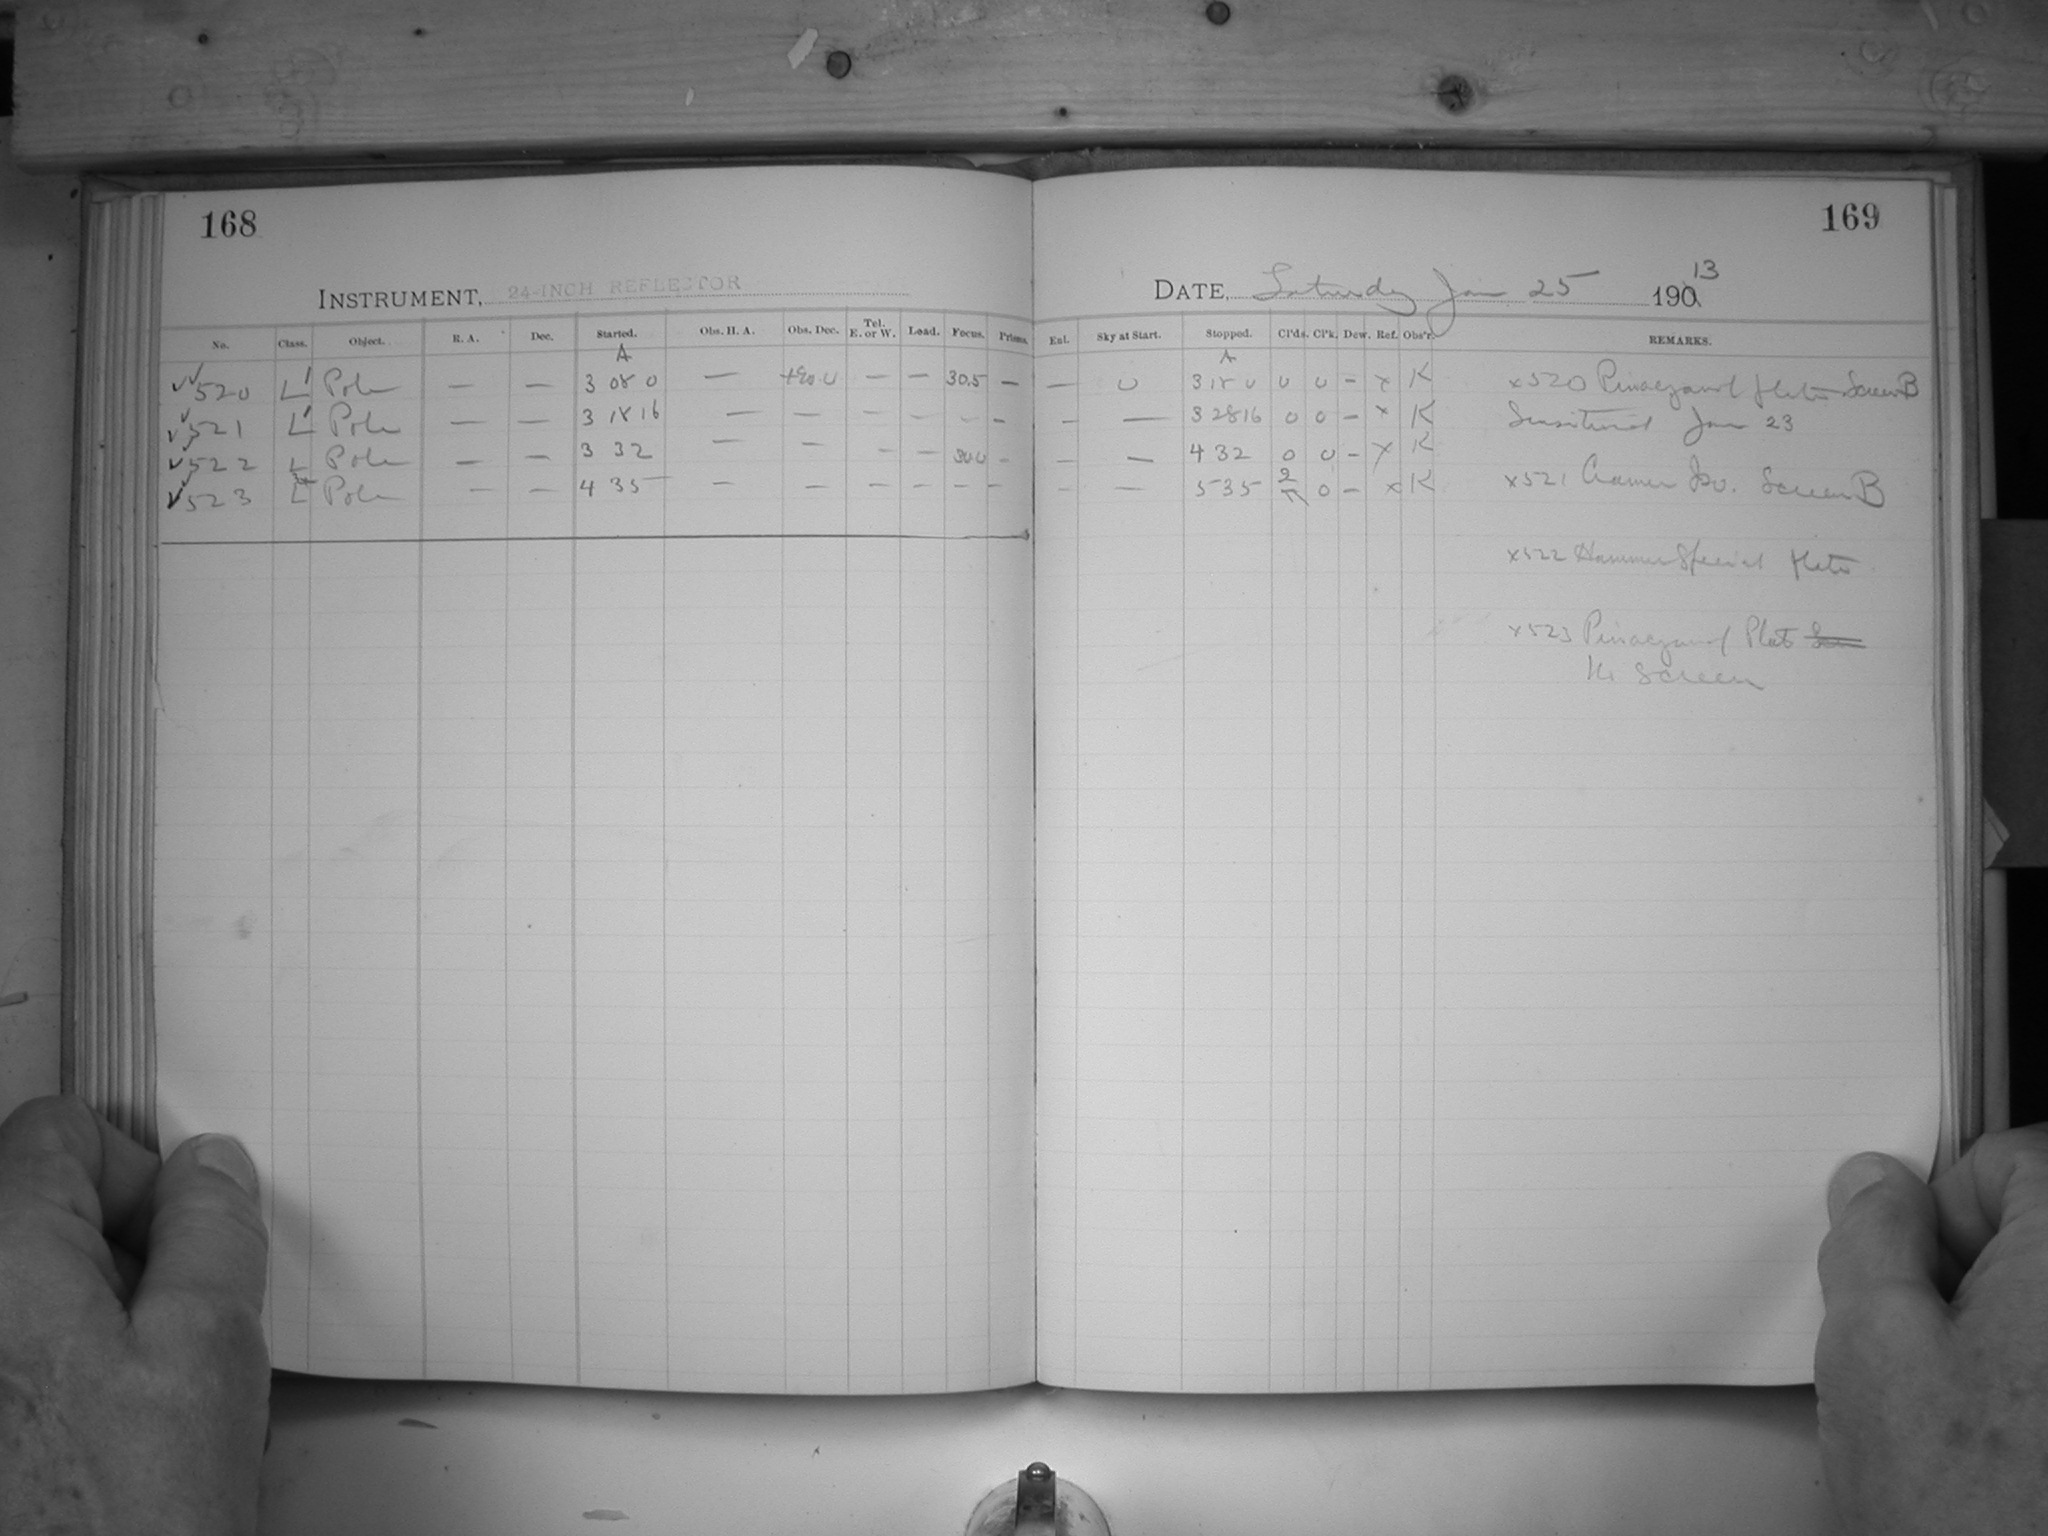 168
169
INSTRUMENT, 24-INCH REFLECTOR
DATE, Saturday Jan 25 190 13
No. Class. Object. R. A. Dec. Started. Obs. H. A. Obs. Dec. Tel. E. or W. Load. Focus. Prisms.
Ext. Sky at Start. Stopped. Cl'ds. Cl'k. Dew. Ref. Obs'r. REMARKS.
A
A
520 L' Pole — — 3 08 0 — +90.0 — — 30.5 —
— 0 3 18 0 0 0 – x K x520 Pinacyanol plate Screen B
521 L' Pole — — 3 18 16 — — — — — —
— — 3 28 16 0 0 – x K Jan 23
522 L Pole — — 3 32 — — — — 30.0 –
— — 4 32 0 0 – x K
523 L Pole — — 4 35 — — — — – –
– — 5 35 2 0 – x K x521 Cramer Iso. Screen B
x522 Hammer Special plate
x523 Pinacyanol Plate
K Screen